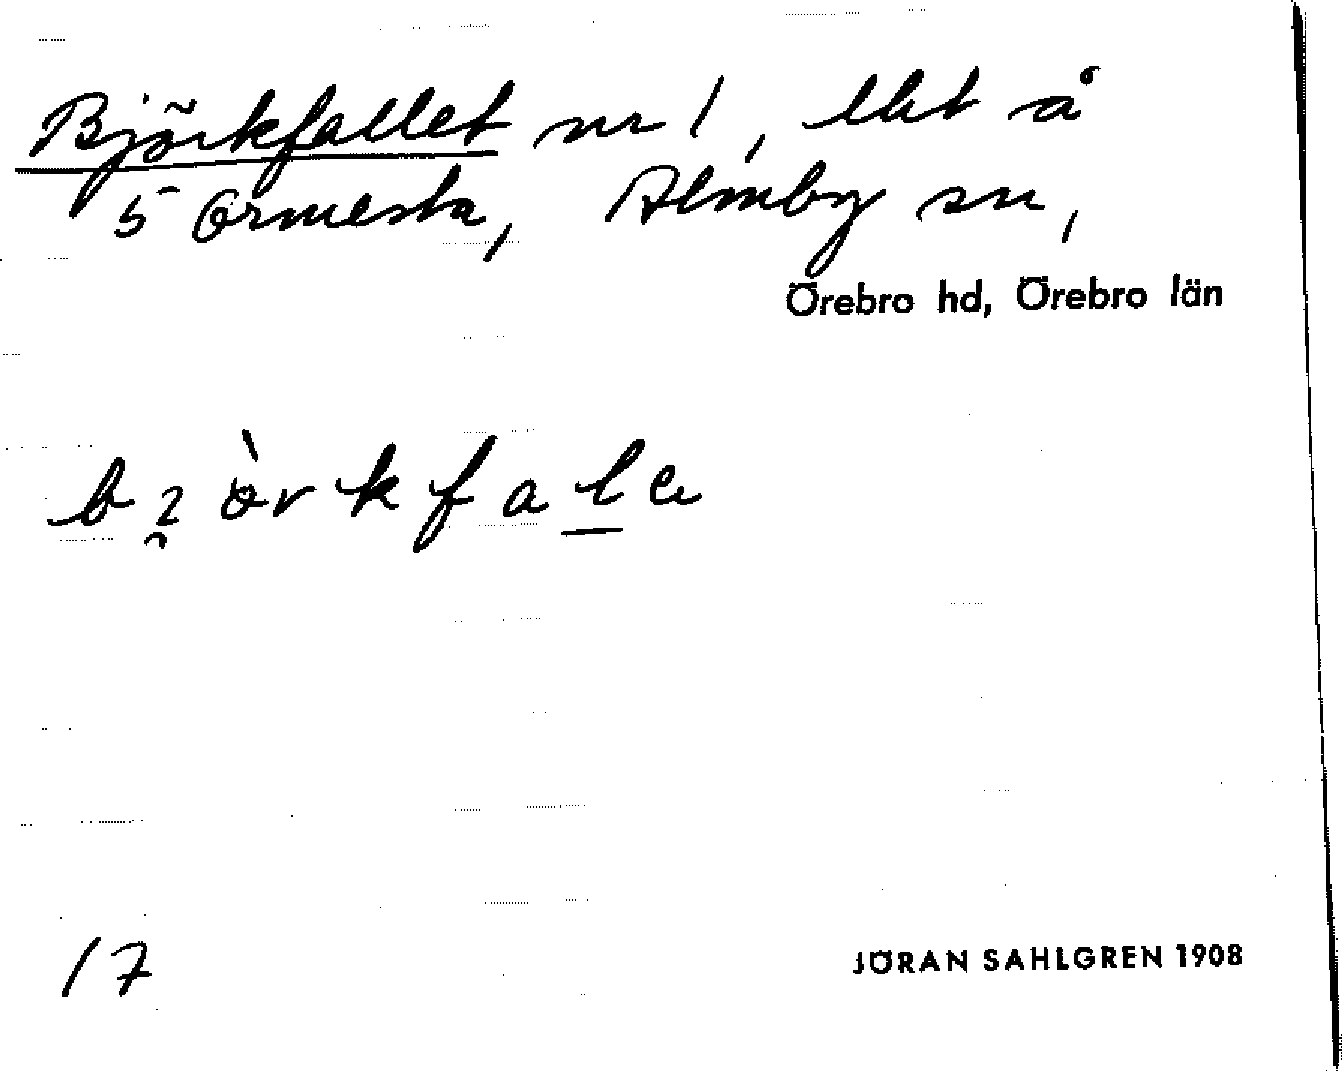 Björkfallet nr 1, lht å
5 Ormesta, Almby sn,
Örebro hd, Örebro län
17
JÖRAN SAHLGREN 1908